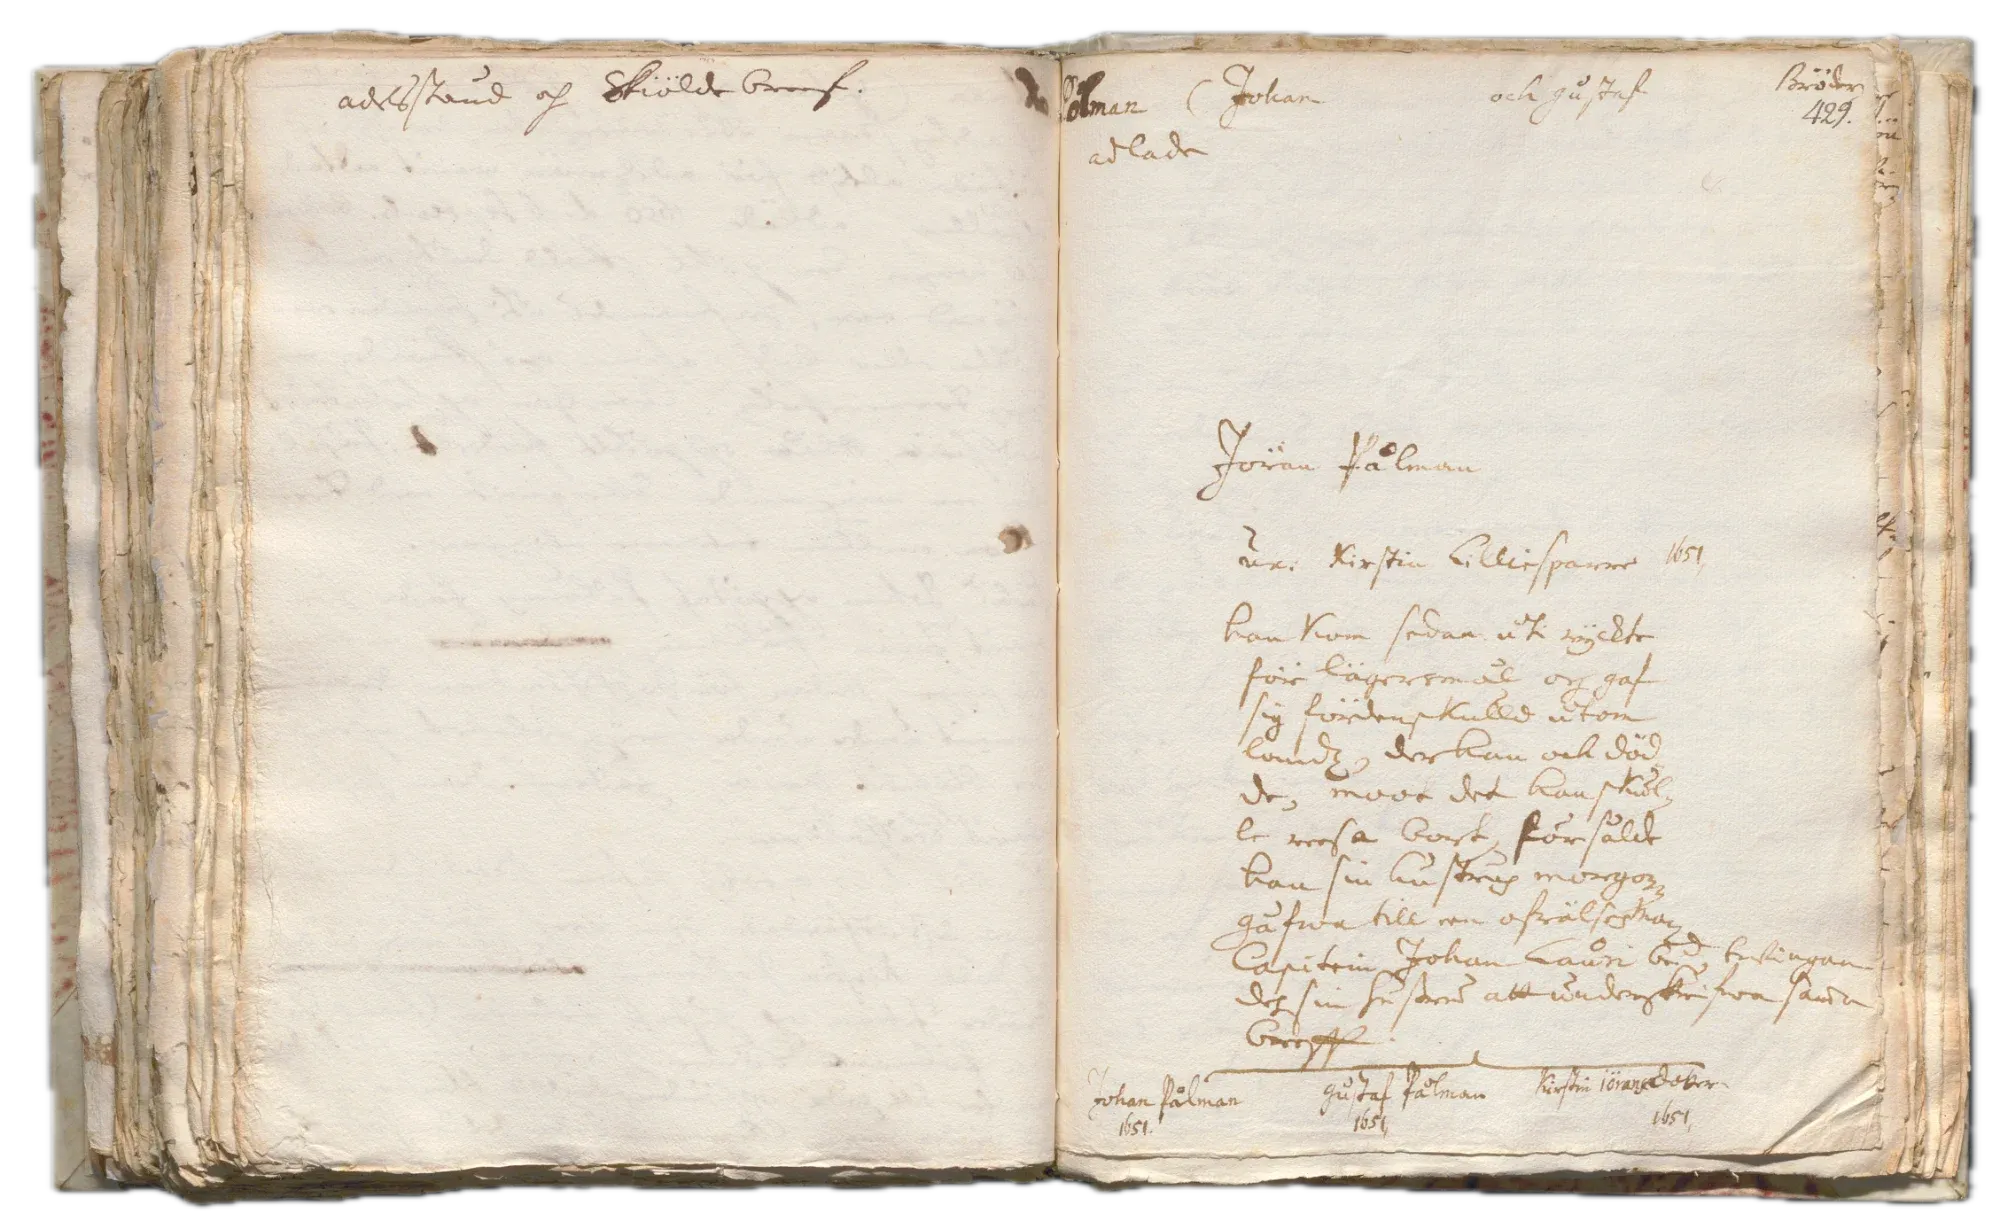 adelsstand och Skiölde breef.
Pålman ( Johan och gustaf Bröder
429.
adlade
Jöran Pålman
ux: Kirstin Lilliesparre 1651,
han kom sedan uti ryckte
för lägersmål och gaf
sig fördenskulld utom
landz, der han och död
de, moot det han skul,
le reesa bort, försålde
han sin hustrus morgon
gåfwa till een ofrälse man
Capitein Johan Lauri bed twingan
des sin hustru att underskrifwa samma
breeff.
Johan Pålman gustaf Pålman Kirstin iörans doter
1651. 1651, 1651,